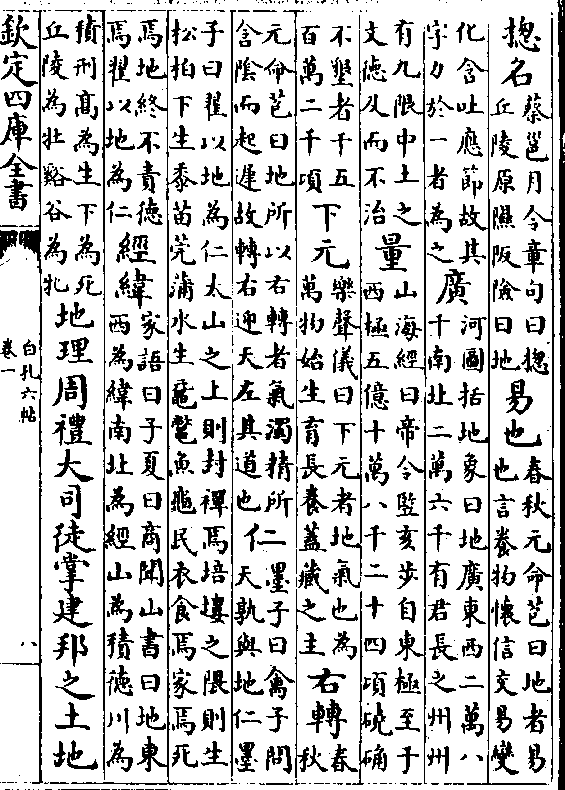 揔名蔡邕月令章句曰揔丘陵原隰阪險曰地易也春秋元命苞曰地者易也言養物懷信交易變
化含吐應節故其字力於一者為之廣河圖括地象曰地廣東西二萬八千南北二萬六千有君長之州州
有九限中土之文德及而不治量山海經曰帝令監亥步自東極至于西極五億十萬八千二十四項磽确
不墾者千五百萬二千項下元樂聲儀曰下元者地氣也為萬物始生育長養蓋藏之主右轉春秋
元命苞曰地所以右轉者氣濁精所含隂而起遲故轉右迎天左其道也仁墨子曰禽子問天孰與地仁墨
子曰翟以地為仁太山之上則封禪焉培塿之隈則生松柏下生黍苗莞蒲水生黿鼉魚龜民衣食焉家焉死
焉地終不責德焉翟以地為仁經緯家語曰子夏曰商聞山書曰地東西為緯南北為經山為積德川為
積刑髙為生下為死丘陵為牡谿谷為牝地理周禮大司徒掌建邦之土地
欽定四庫全書
白孔六帖
卷一
八